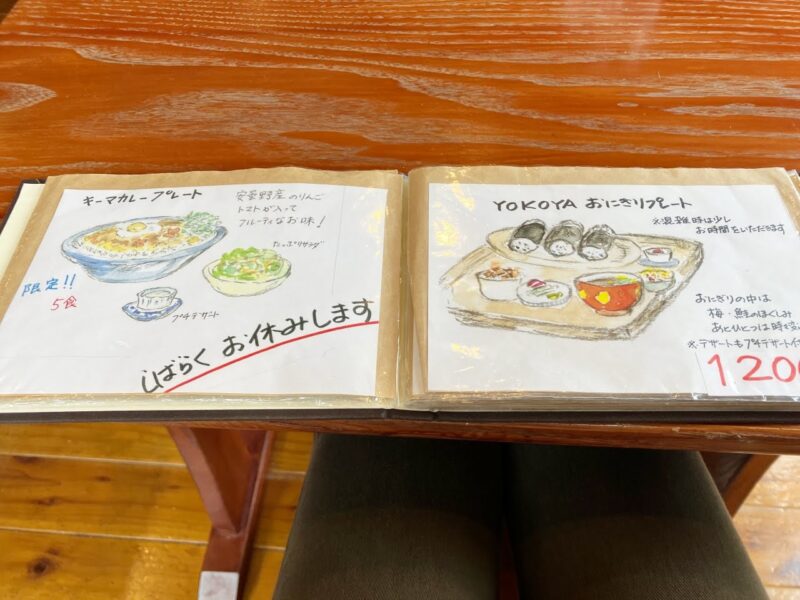 キーマカレープレート
安曇野産のりんご
トマトが入って
フルーティなお味!
たっぷりサラダ
限定!!
5食
プチデザート
しばらく お休みします
YOKOYA おにぎりプレート
※混雑時は少し
お時間をいただきます
おにぎりの中は
梅・鮭のほぐしみ
あとひとつは時
※デザートもプチデザート
120